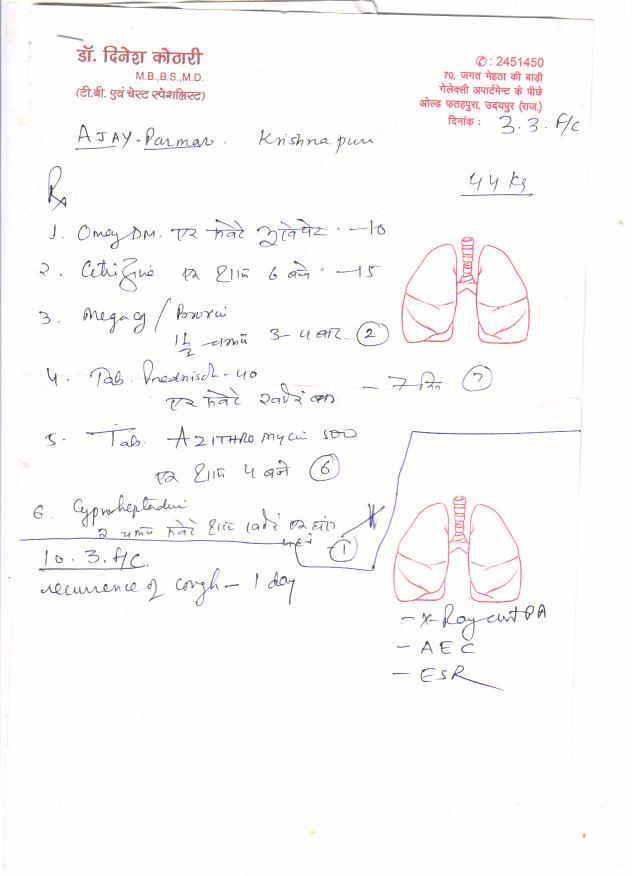 डॉ. दिनेश कोठारी
M.B.,B.S.,M.D.
(टी.बी. एवं चेस्ट स्पेशलिस्ट)
✆ : 2451450
70, जगत मेहता की बाड़ी
गेलेक्सी अपार्टमेन्ट के पीछे
ओल्ड फतहपुरा, उदयपुर (राज.)
दिनांक : 3.3. F/C
AJAY - Parmar. Krishna puri
Rx
44 Kg
1. Omey DM. एक सवेरे - 10
2. Cetrizine एक शाम 6 बजे - 15
3. Megacg /
1½ चम्मच 3-4 बार (2)
4. Tab. Prednisol - 40
एक सवेरे - 7 दिन (7)
5. Tab. AZITHROmycin 500
एक शाम 4 बजे (6)
6. Cyproheptadin
2 चम्मच सवेरे शाम
(1)
10.3. F/C
recurrence of cough - 1 day
- X-Ray chest PA
- AEC
- ESR